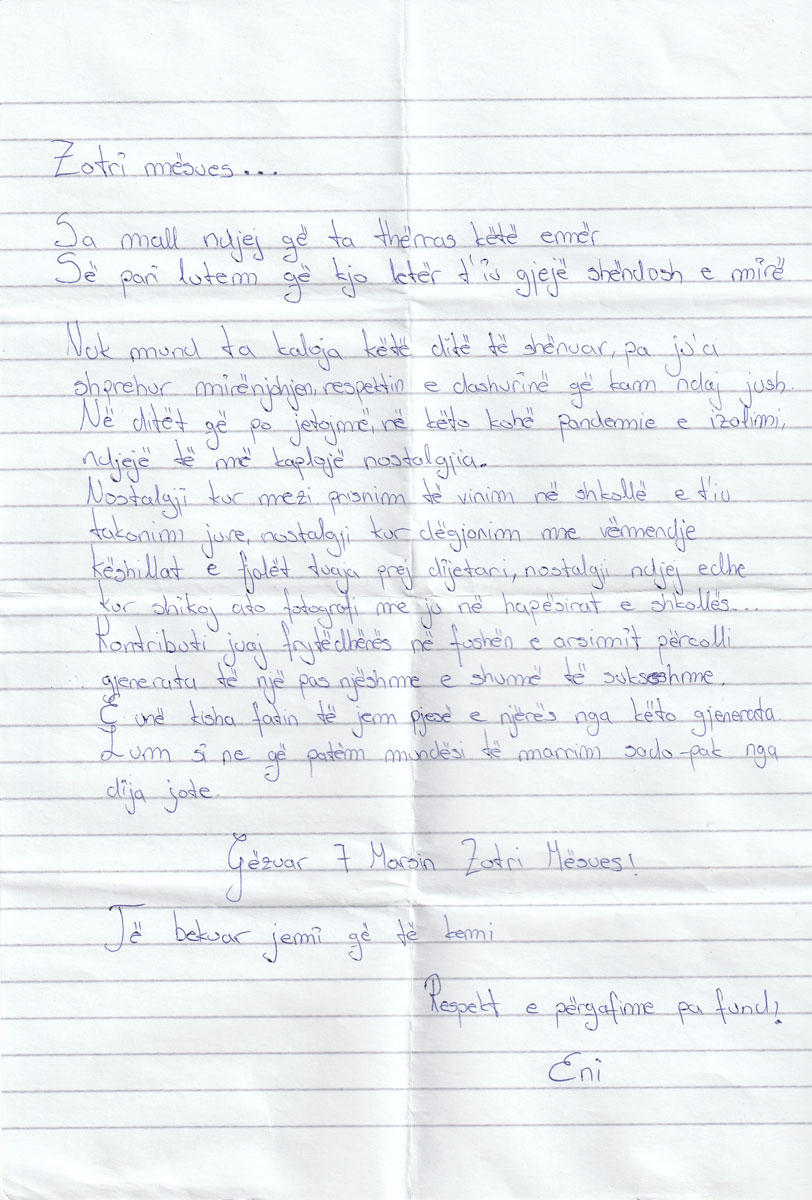 Zotri mësues...
Sa mall ndjej që ta thërras këtë emër
Së pari lutem që kjo letër t'iu gjejë shëndosh e mirë
Nuk mund ta kaloja këtë ditë të shënuar, pa ju'a
shprehur mirënjohjen, respektin e dashurinë që kam ndaj jush.
Në ditët që po jetojmë, në këto kohë pandemie e izolimi,
ndjejë të më kaplojë nostalgjia.
Nostalgji kur mezi prisnim të vinim në shkollë e t'iu
takonim juve, nostalgji kur dëgjonim me vëmendje
këshillat e fjalët tuaja prej dijetari, nostalgji ndjej edhe
kur shikoj ato fotografi me ju në hapësirat e shkollës...
Kontributi juaj frytëdhërës në fushën e arsimit përcolli
gjenerata të një pas njëshme e shumë të suksshme.
E unë kisha fatin të jem pjesë e njërës nga këto gjenerata
Lum si ne që patëm mundësi të marrim sado-pak nga
dija jote.
Gëzuar 7 Marsin Zotri Mësues!
Të bekuar jemi që të kemi
Respekt e përqafime pa fund!
Eni